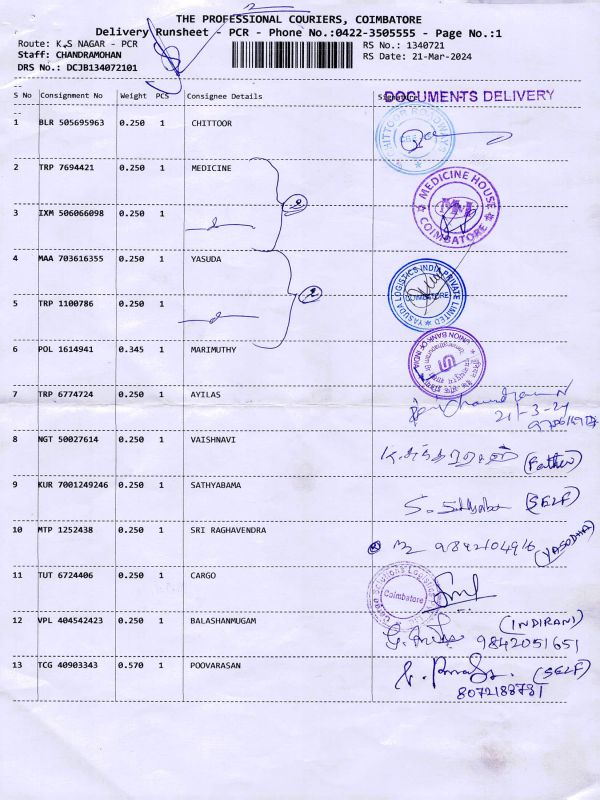 2
THE PROFESSIONAL COURIERS, COIMBATORE
Delivery Runsheet - PCR - Phone No.:0422-3505555 - Page No.:1
Route: K.S NAGAR - PCR RS No.: 1340721
Staff: CHANDRAMOHAN RS Date: 21-Mar-2024
DRS No.: DCJB134072101
S No Consignment No Weight PCS Consignee Details Signature DOCUMENTS DELIVERY
1 BLR 505695963 0.250 1 CHITTOOR
2 TRP 7694421 0.250 1 MEDICINE MEDICINE HOUSE COIMBATORE
3 IXM 506066098 0.250 1 2
4 MAA 703616355 0.250 1 YASUDA YASUDA LOGISTICS INDIA PRIVATE LIMITED COIMBATORE
5 TRP 1100786 0.250 1 2
6 POL 1614941 0.345 1 MARIMUTHY UNION BANK OF INDIA
7 TRP 6774724 0.250 1 AYILAS
21-3-24
8 NGT 50027614 0.250 1 VAISHNAVI (Father)
9 KUR 7001249246 0.250 1 SATHYABAMA (SELF)
10 MTP 1252438 0.250 1 SRI RAGHAVENDRA 9842104916 (YASODHA)
11 TUT 6724406 0.250 1 CARGO Coimbatore
12 VPL 404542423 0.250 1 BALASHANMUGAM (INDIRANI)
9842051651
13 TCG 40903343 0.570 1 POOVARASAN (SELF)
8072183731